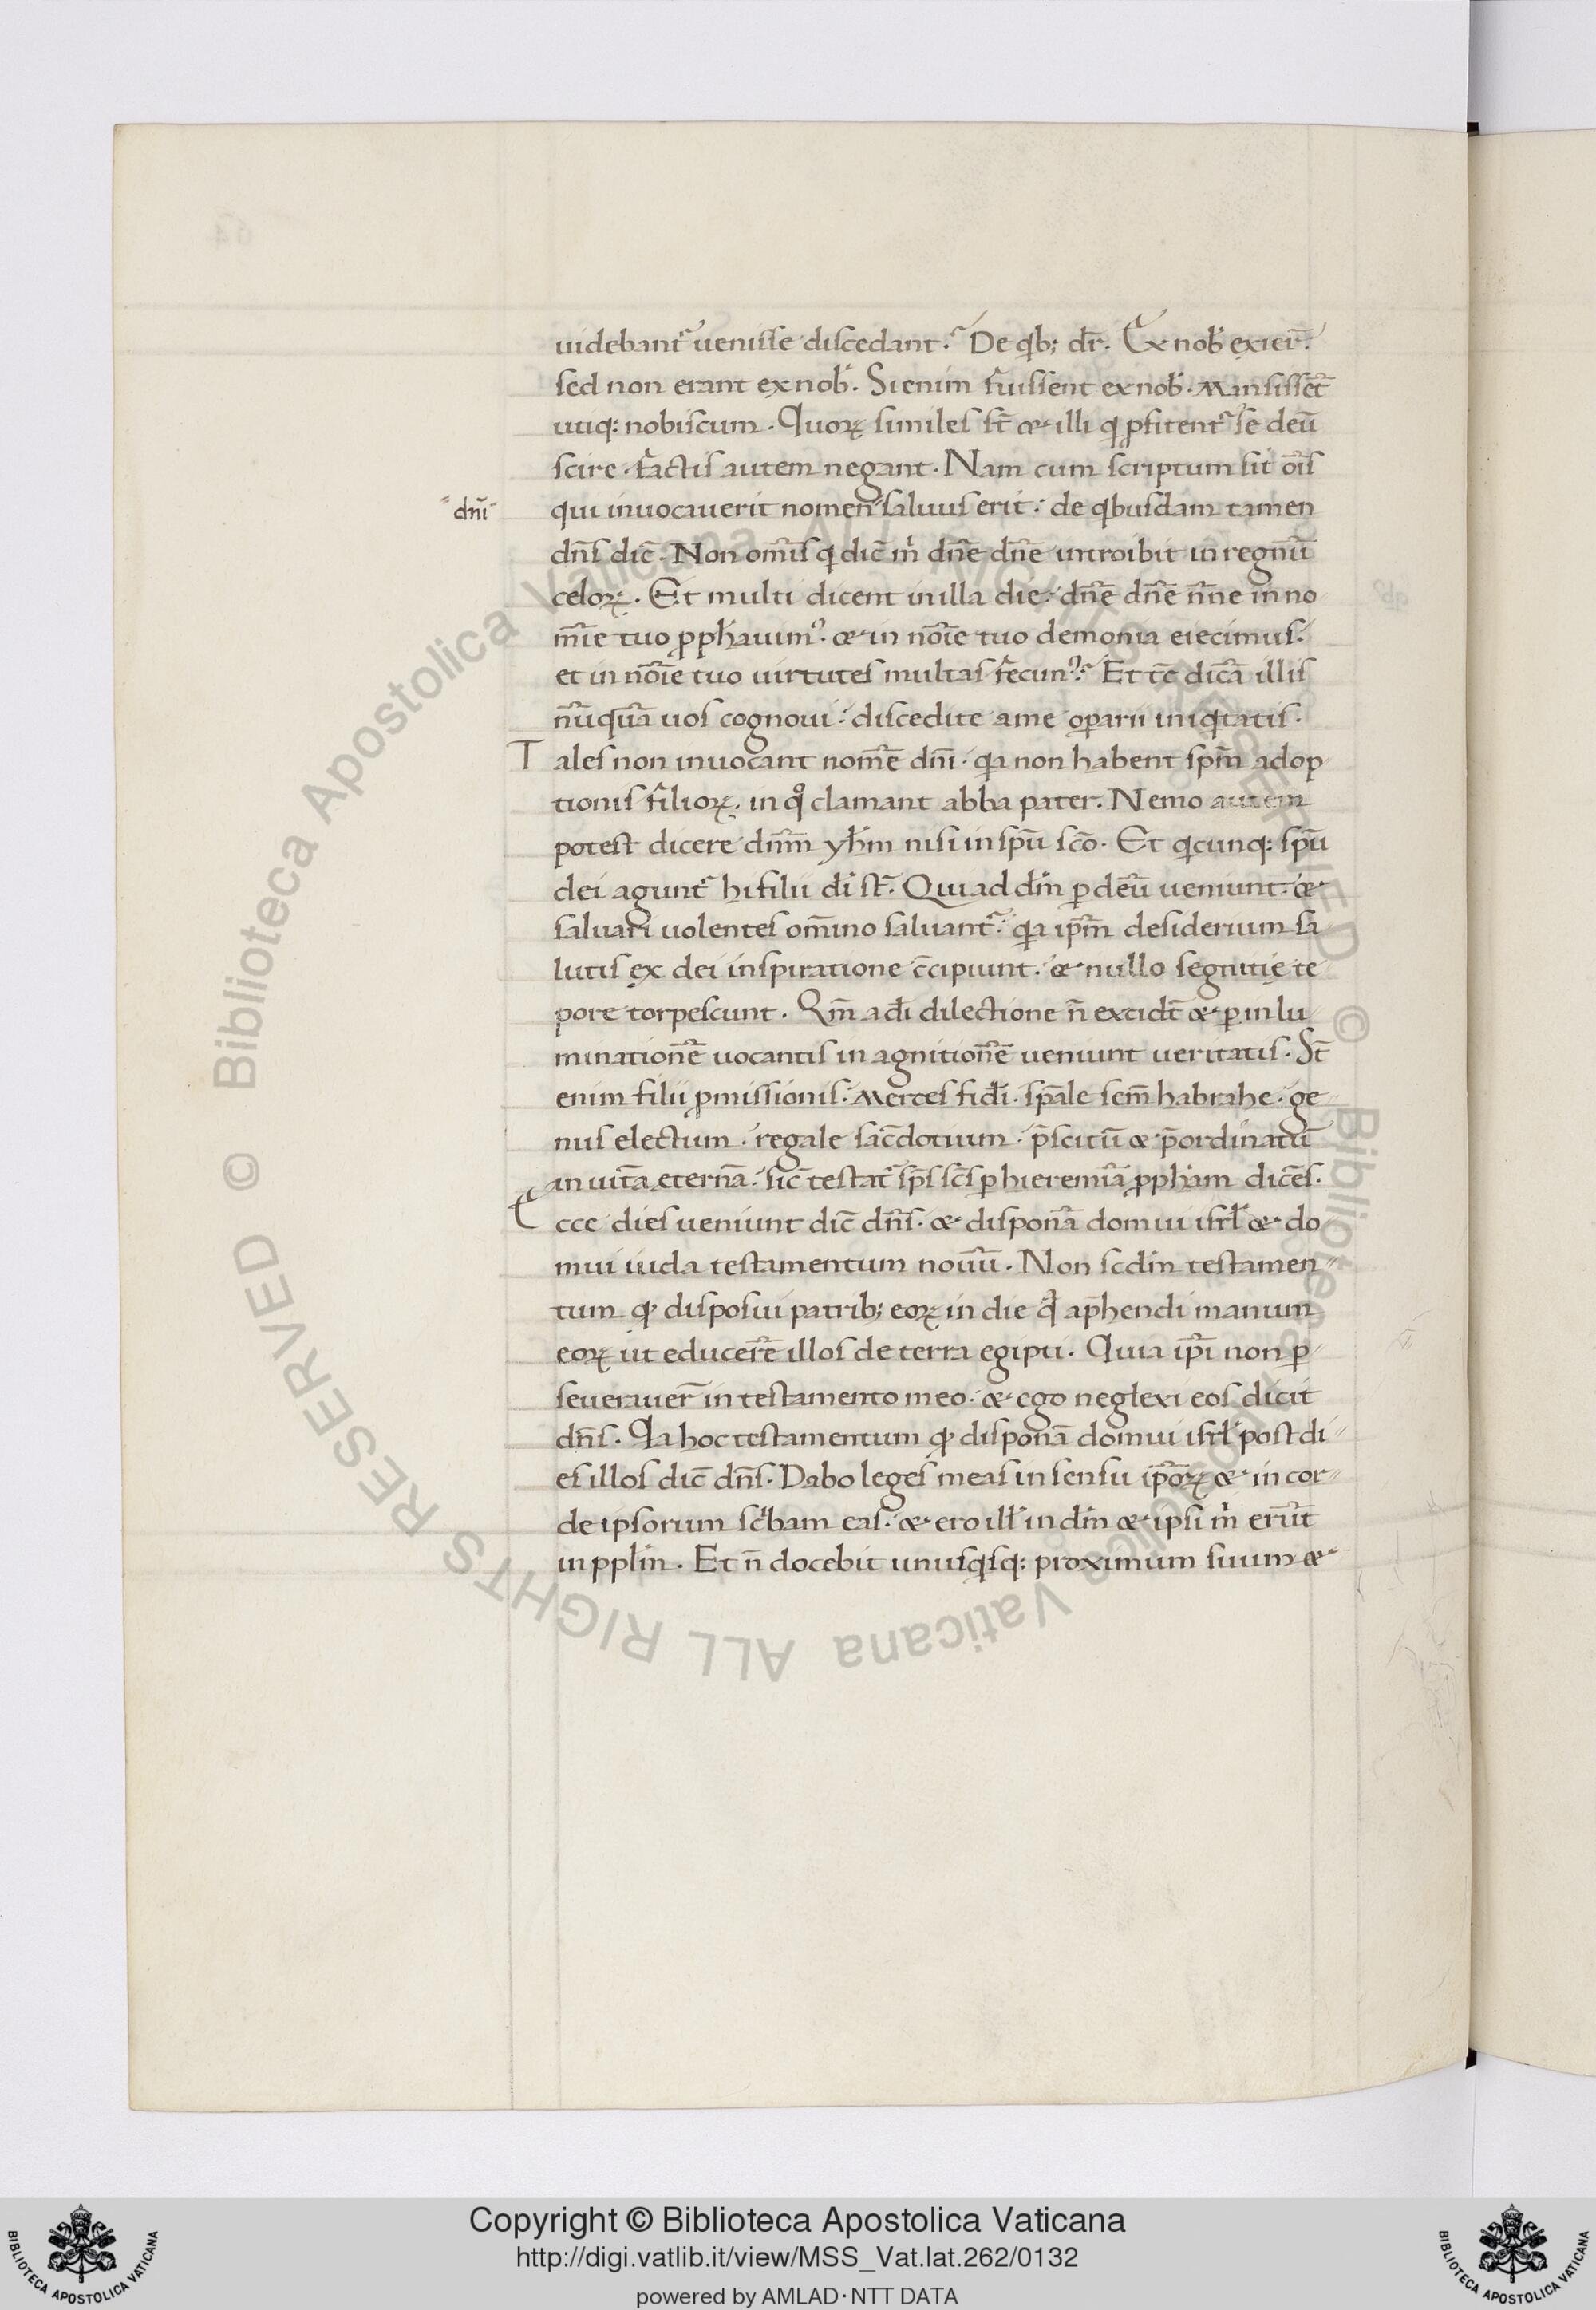 uidebant᷑ uenisse discedant. De qb; dr̄. Ex nob̾ exier̄.
sed non erant ex nob̾. Si enim fuissent ex nob̾. Mansissēt
utiq: nobiscum. Quoꝝ similes st̄ & illi q ꝓfitent᷑ se deū
scire. factis autem negant. Nam cum scriptum sit ōis
dn̄i
qui inuocauerit nomen saluus erit: de qbusdam tamen
dn̄s dic̄. Non omīs q dic̄ m̍ dn̄e dn̄e introibit in regnū
celoꝝ. Et multi dicent in illa die: dn̄e dn̄e n̄ne in no
mīe tuo ꝓph̄auim᷒. & in nōie tuo demonia eiecimus.
et in nōie tuo uirtutes multas fecim᷒. Et tc̄ dicā illis
nūquā uos cognoui: discedite a me oꝑarii iniqtatis.
Tales non inuocant nomē dn̄i. qa non habent spm̄ adop
tionis filioꝝ. in qͦ clamant abba pater. Nemo autem
potest dicere dnm̄ yh̄m nisi in spū scō. Et qcunq: spū
dei agunt᷑ hi filii di̾ st̄. Qui ad dm̄ ꝑ deū ueniunt. &
saluari uolentes om̄ino saluant᷑. qa ipm̄ desiderium sa
lutis ex dei inspiratione c̄cipiunt. & nullo segnitię te
pore torpescunt. Qm̄ a di̾ dilectione n̄ excidt̄ & ꝑ inlu
minationē uocantis in agnitionē ueniunt ueritatis. St̄
enim filii ꝓmissionis. Merces fidi̾. spāle sem̄ habrahe. ge
nus electum. regale sac̄dotium. p̄scitū & p̄ordinatū
in uitā eternā. sic̄ testat᷑ sp̄s sc̄s ꝑ hieremiā ꝓph̄am dicēs.
Ecce dies ueniunt dic̄ dn̄s. & disponā domui isrl̄ & do
mui iuda testamentum nouū. Non scdm̄ testamen
tum qꝫ disposui patrib; eoꝝ in die qͣ ap̄hendi manum
eoꝝ ut educerē illos de terra egipti. Quia ipi̅ non ꝑ
seuerauer̄ in testamento meo. & ego neglexi eos dicit
dn̄s. Qa hoc testamentum qꝫ disponā domui isrl̄ post di
es illos dic̄ dn̄s. Dabo leges meas in sensu ipōꝝ & in cor
de ipsorum scͥbam eas. & ero ill̾ in dm̄ & ipsi m̍ erūt
in pplm̄. Et n̄ docebit unusqsq: proximum suum &
© Biblioteca Apostolica Vaticana ALL RIGHTS RESERVED © Biblioteca Apostolica Vaticana ALL RIGHTS RESERVED
Copyright © Biblioteca Apostolica Vaticana
http://digi.vatlib.it/view/MSS_Vat.lat.262/0132
powered by AMLAD·NTT DATA
BIBLIOTECA APOSTOLICA VATICANA
BIBLIOTECA APOSTOLICA VATICANA